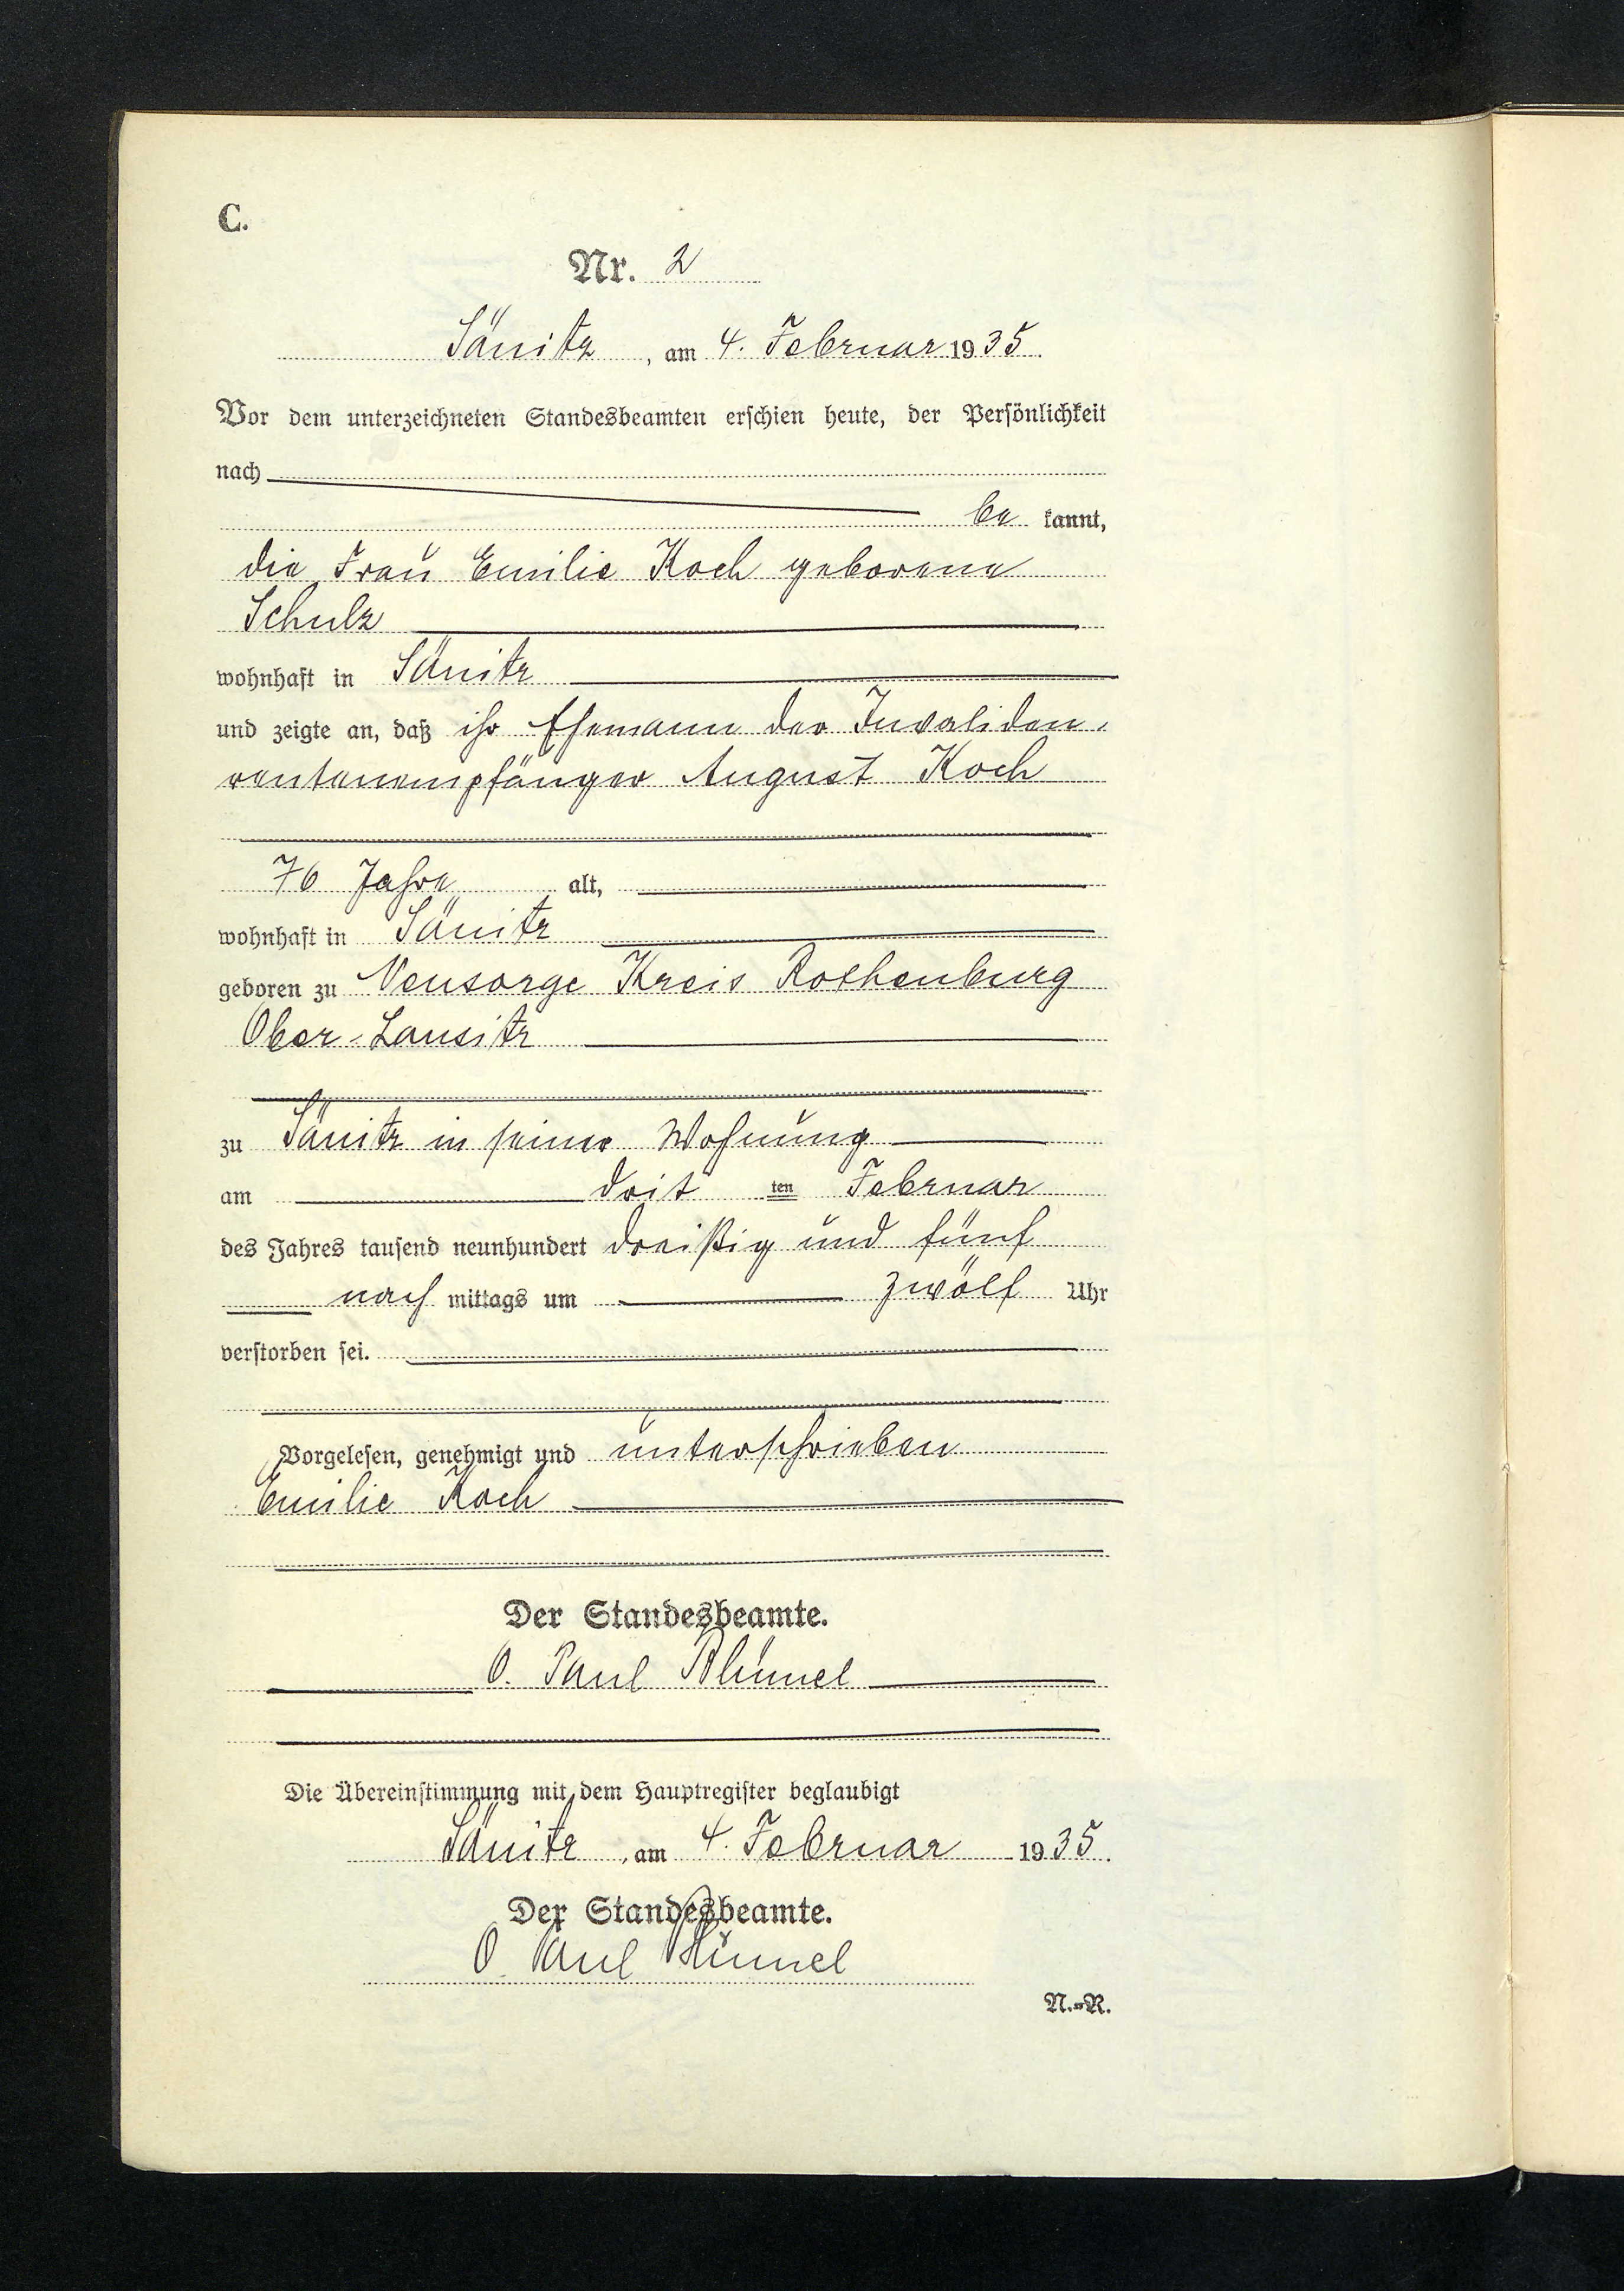 C.
Nr. 2
Sänitz, am 4. Februar 1935.
Vor dem unterzeichneten Standesbeamten erschien heute, der Persönlichkeit
nach
be kannt,
die Frau Emilie Koch geborene
Schulz
wohnhaft in Sänitz
und zeigte an, daß ihr Ehemann der Invaliden-
rentenempfänger August Koch
76 Jahre alt,
wohnhaft in Sänitz
geboren zu Neusorge Kreis Rothenburg
Ober-Lausitz
zu Sänitz in seiner Wohnung
am drit ten Februar
des Jahres tausend neunhundert dreißig und fünf
nach mittags um zwölf Uhr
verstorben sei.
Vorgelesen, genehmigt und unterschrieben
Emilie Koch
Der Standesbeamte.
O. Paul Blümel
Die Übereinstimmung mit dem Hauptregister beglaubigt
Sänitz, am 4. Februar 1935.
Der Standesbeamte.
O. Paul Blümel
N.=R.